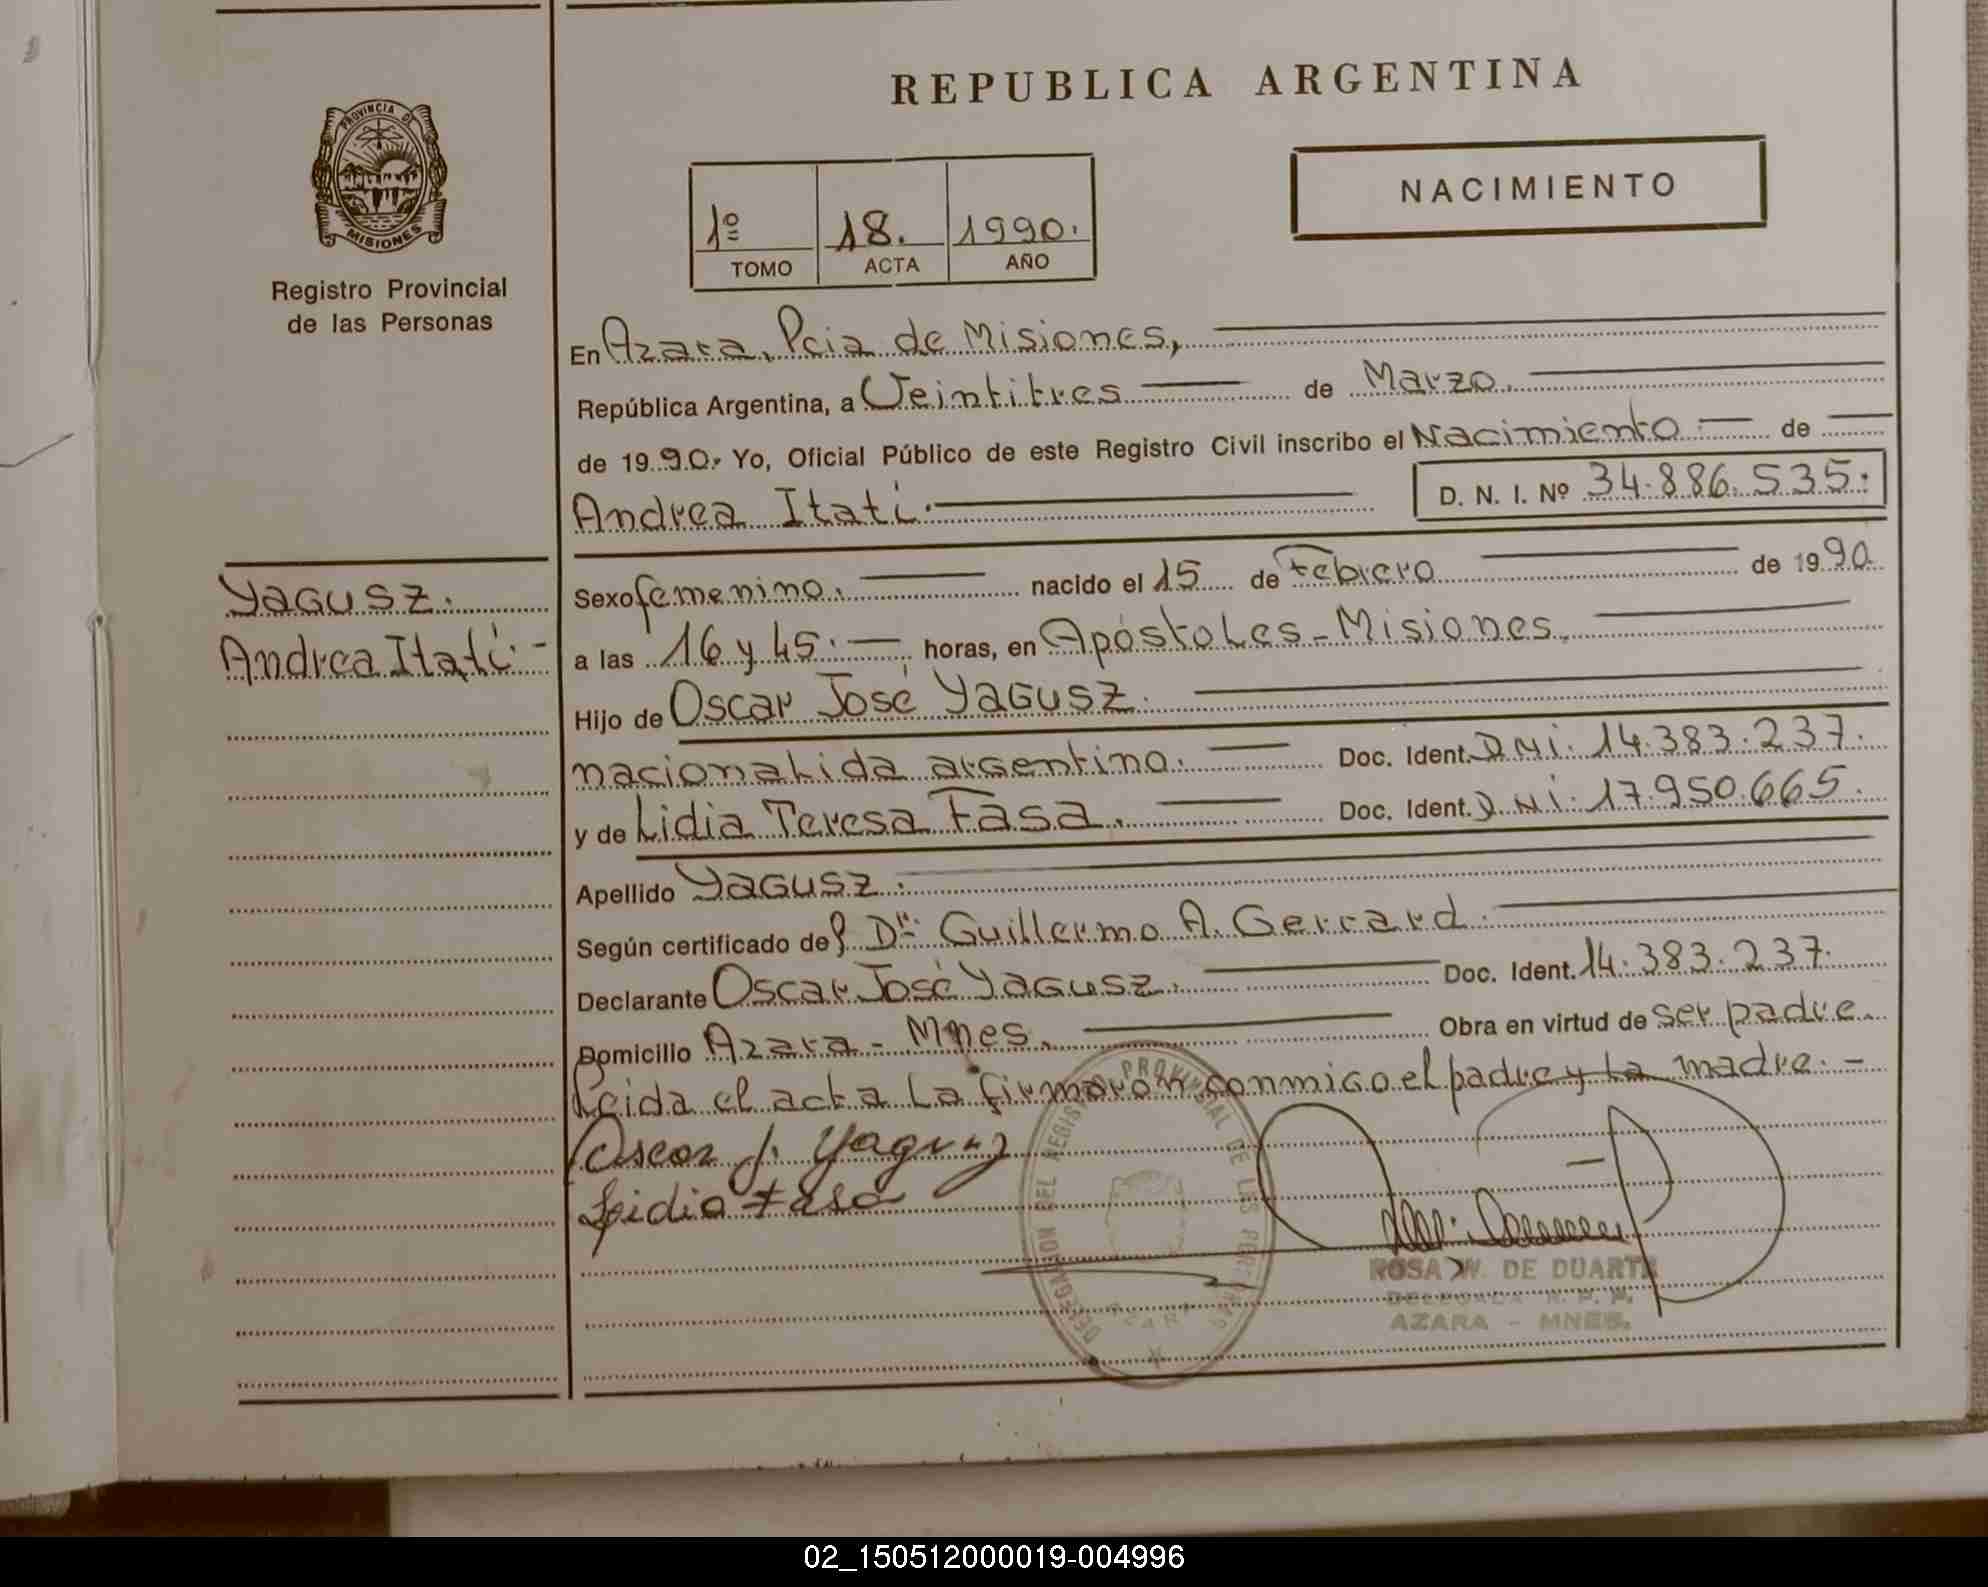 REPUBLICA ARGENTINA
PROVINCIA DE
MISIONES
Registro Provincial
de las Personas
1º 18. 1990.
TOMO ACTA AÑO
NACIMIENTO
En Azara, Pcia de Misiones,
República Argentina, a Veintitres de Marzo.
de 1990. Yo, Oficial Público de este Registro Civil inscribo el Nacimiento de
Andrea Itatí. D. N. I. Nº 34.886.535.
Yagusz.
Andrea Itatí.-
Sexo femenino. nacido el 15 de Febrero de 1990
a las 16 y 45. horas, en Apóstoles - Misiones.
Hijo de Oscar José Yagusz.
nacionalida argentino. Doc. Ident. DNI. 14.383.237.
y de Lidia Teresa Fasa. Doc. Ident. DNI. 17.950.665.
Apellido Yagusz.
Según certificado del Dr. Guillermo A. Gerrard.
Declarante Oscar José Yagusz. Doc. Ident. 14.383.237.
Domicilio Azara - Mnes. Obra en virtud de ser padre.
Leida el acta la firmaron conmigo el padre y la madre.-
Oscar J. Yagusz
Lidia Fasa
DELEGACION DEL REGISTRO PROVINCIAL DE LAS PERSONAS
AZARA
ROSA W. DE DUARTE
DELEGADA R. P. P.
AZARA - MNES.
02_150512000019-004996